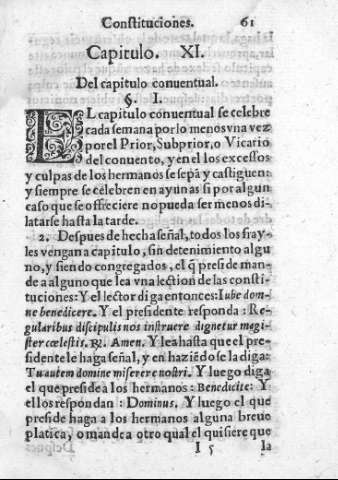 Constituciones. 61
Capitulo. XI.
Del capitulo conuentual.
§. I.
EL capitulo conuentual se celebre
cada semana por lo menos vna vez
por el Prior, Subprior, o Vicario
del conuento, y en el los excessos
y culpas de los hermanos se sepã y castiguen:
y siempre se celebren en ayunas si por algun
caso que se offreciere no pueda ser menos di-
latarse hasta la tarde.
2. Despues de hecha señal, todos los fray-
les vengan a capitulo, sin detenimiento algu
no, y siendo congregados, el q̃ preside man-
de a alguno que lea vna lection de las consti-
tuciones: Y el lector diga entonces: Iube dom-
ne benedicere. Y el presidente responda: Re-
gularibus discipulis nos instruere dignetur magi-
ster cœlestis. ℟. Amen. Y lea hasta que el pre-
sidente le haga señal, y en haziẽdo se la diga:
Tu autem domine miserere nostri. Y luego diga
el que preside a los hermanos: Benedicite: Y
ellos respondan: Dominus. Y luego el que
preside haga a los hermanos alguna breue
platica, o mande a otro qual el quisiere que
I 5 la